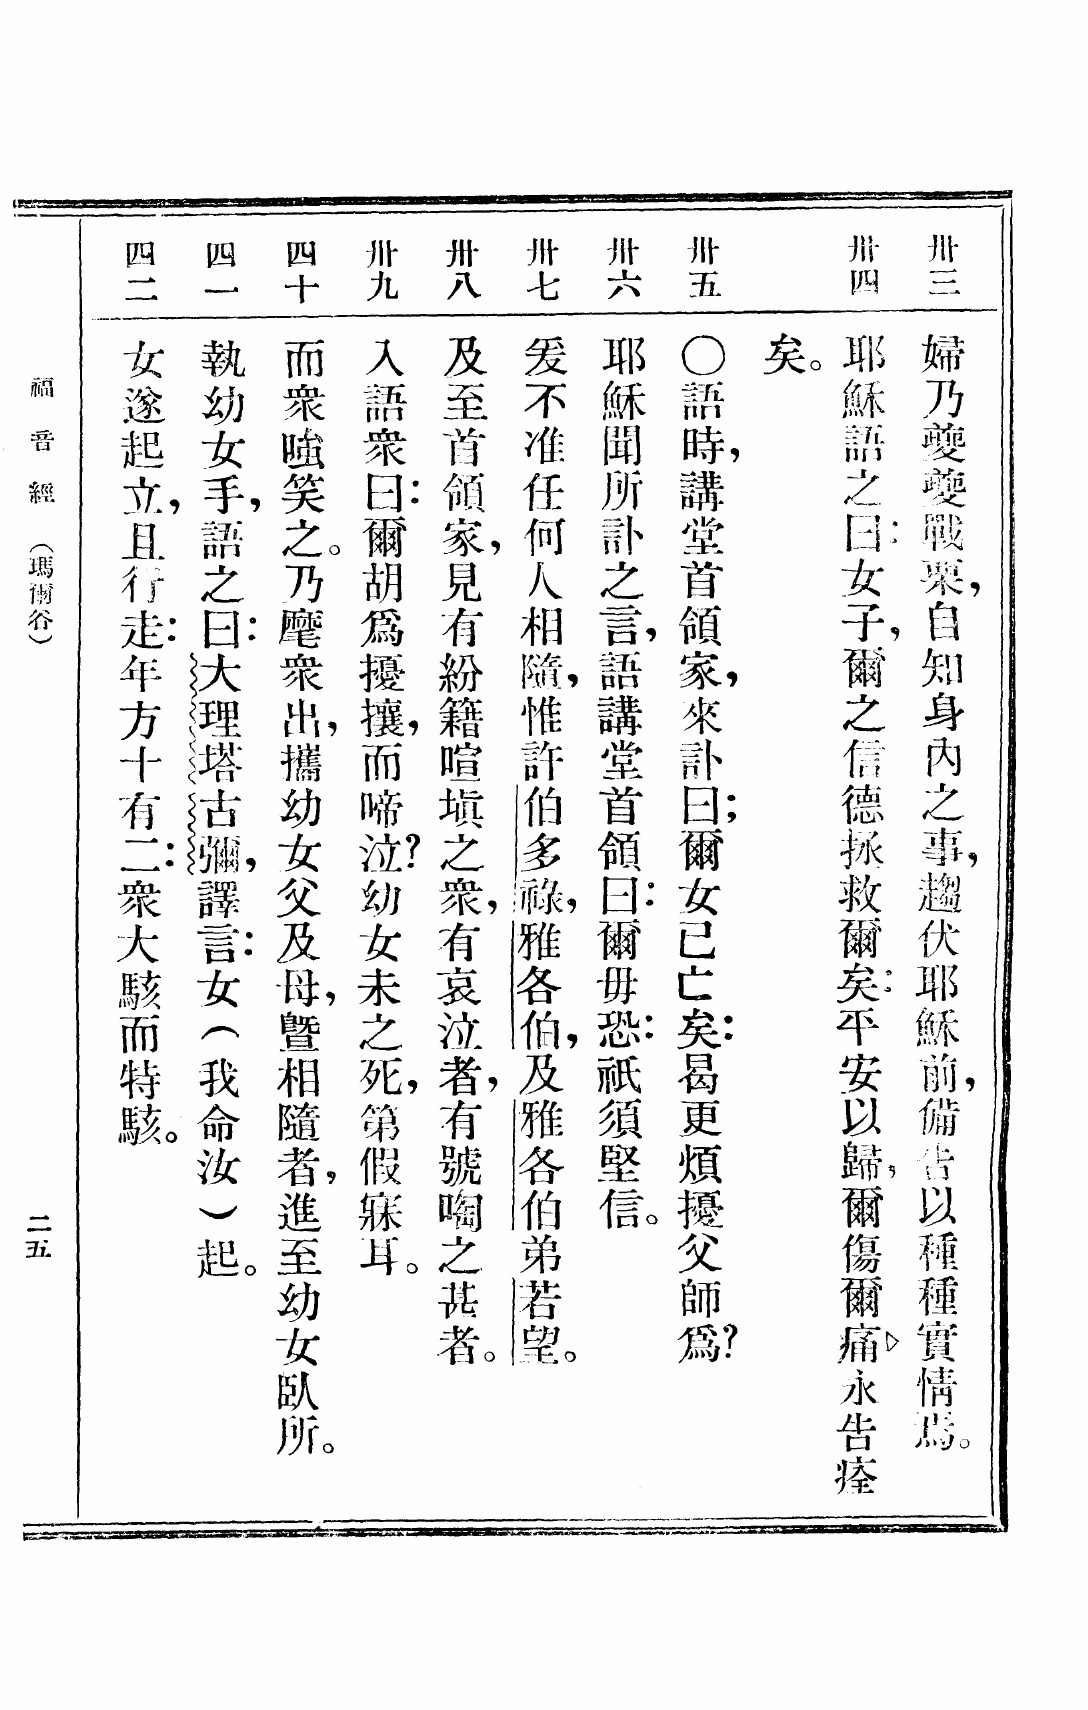 卅三 婦乃夔夔戰栗,自知身內之事,趨伏耶穌前,備告以種種實情焉。
卅四 耶穌語之曰:女子,爾之信德拯救爾矣:平安以歸,爾傷爾痛,永告痊
矣。
卅五 〇語時,講堂首領家,來訃曰;爾女已亡矣:曷更煩擾父師爲?
卅六 耶穌聞所訃之言,語講堂首領曰:爾毋恐:祇須堅信。
卅七 爰不准任何人相隨,惟許伯多祿,雅各伯,及雅各伯弟若望。
卅八 及至首領家,見有紛籍喧塡之衆,有哀泣者,有號啕之甚者。
卅九 入語衆曰:爾胡爲擾攘,而啼泣?幼女未之死,第假寐耳。
四十 而衆嗤笑之。乃麾衆出,攜幼女父及母,曁相隨者,進至幼女臥所。
四一 執幼女手,語之曰:大理塔古彌,譯言:女(我命汝)起。
四二 女遂起立,且行走:年方十有二:衆大駭而特駭。
福音經 (瑪爾谷) 二五